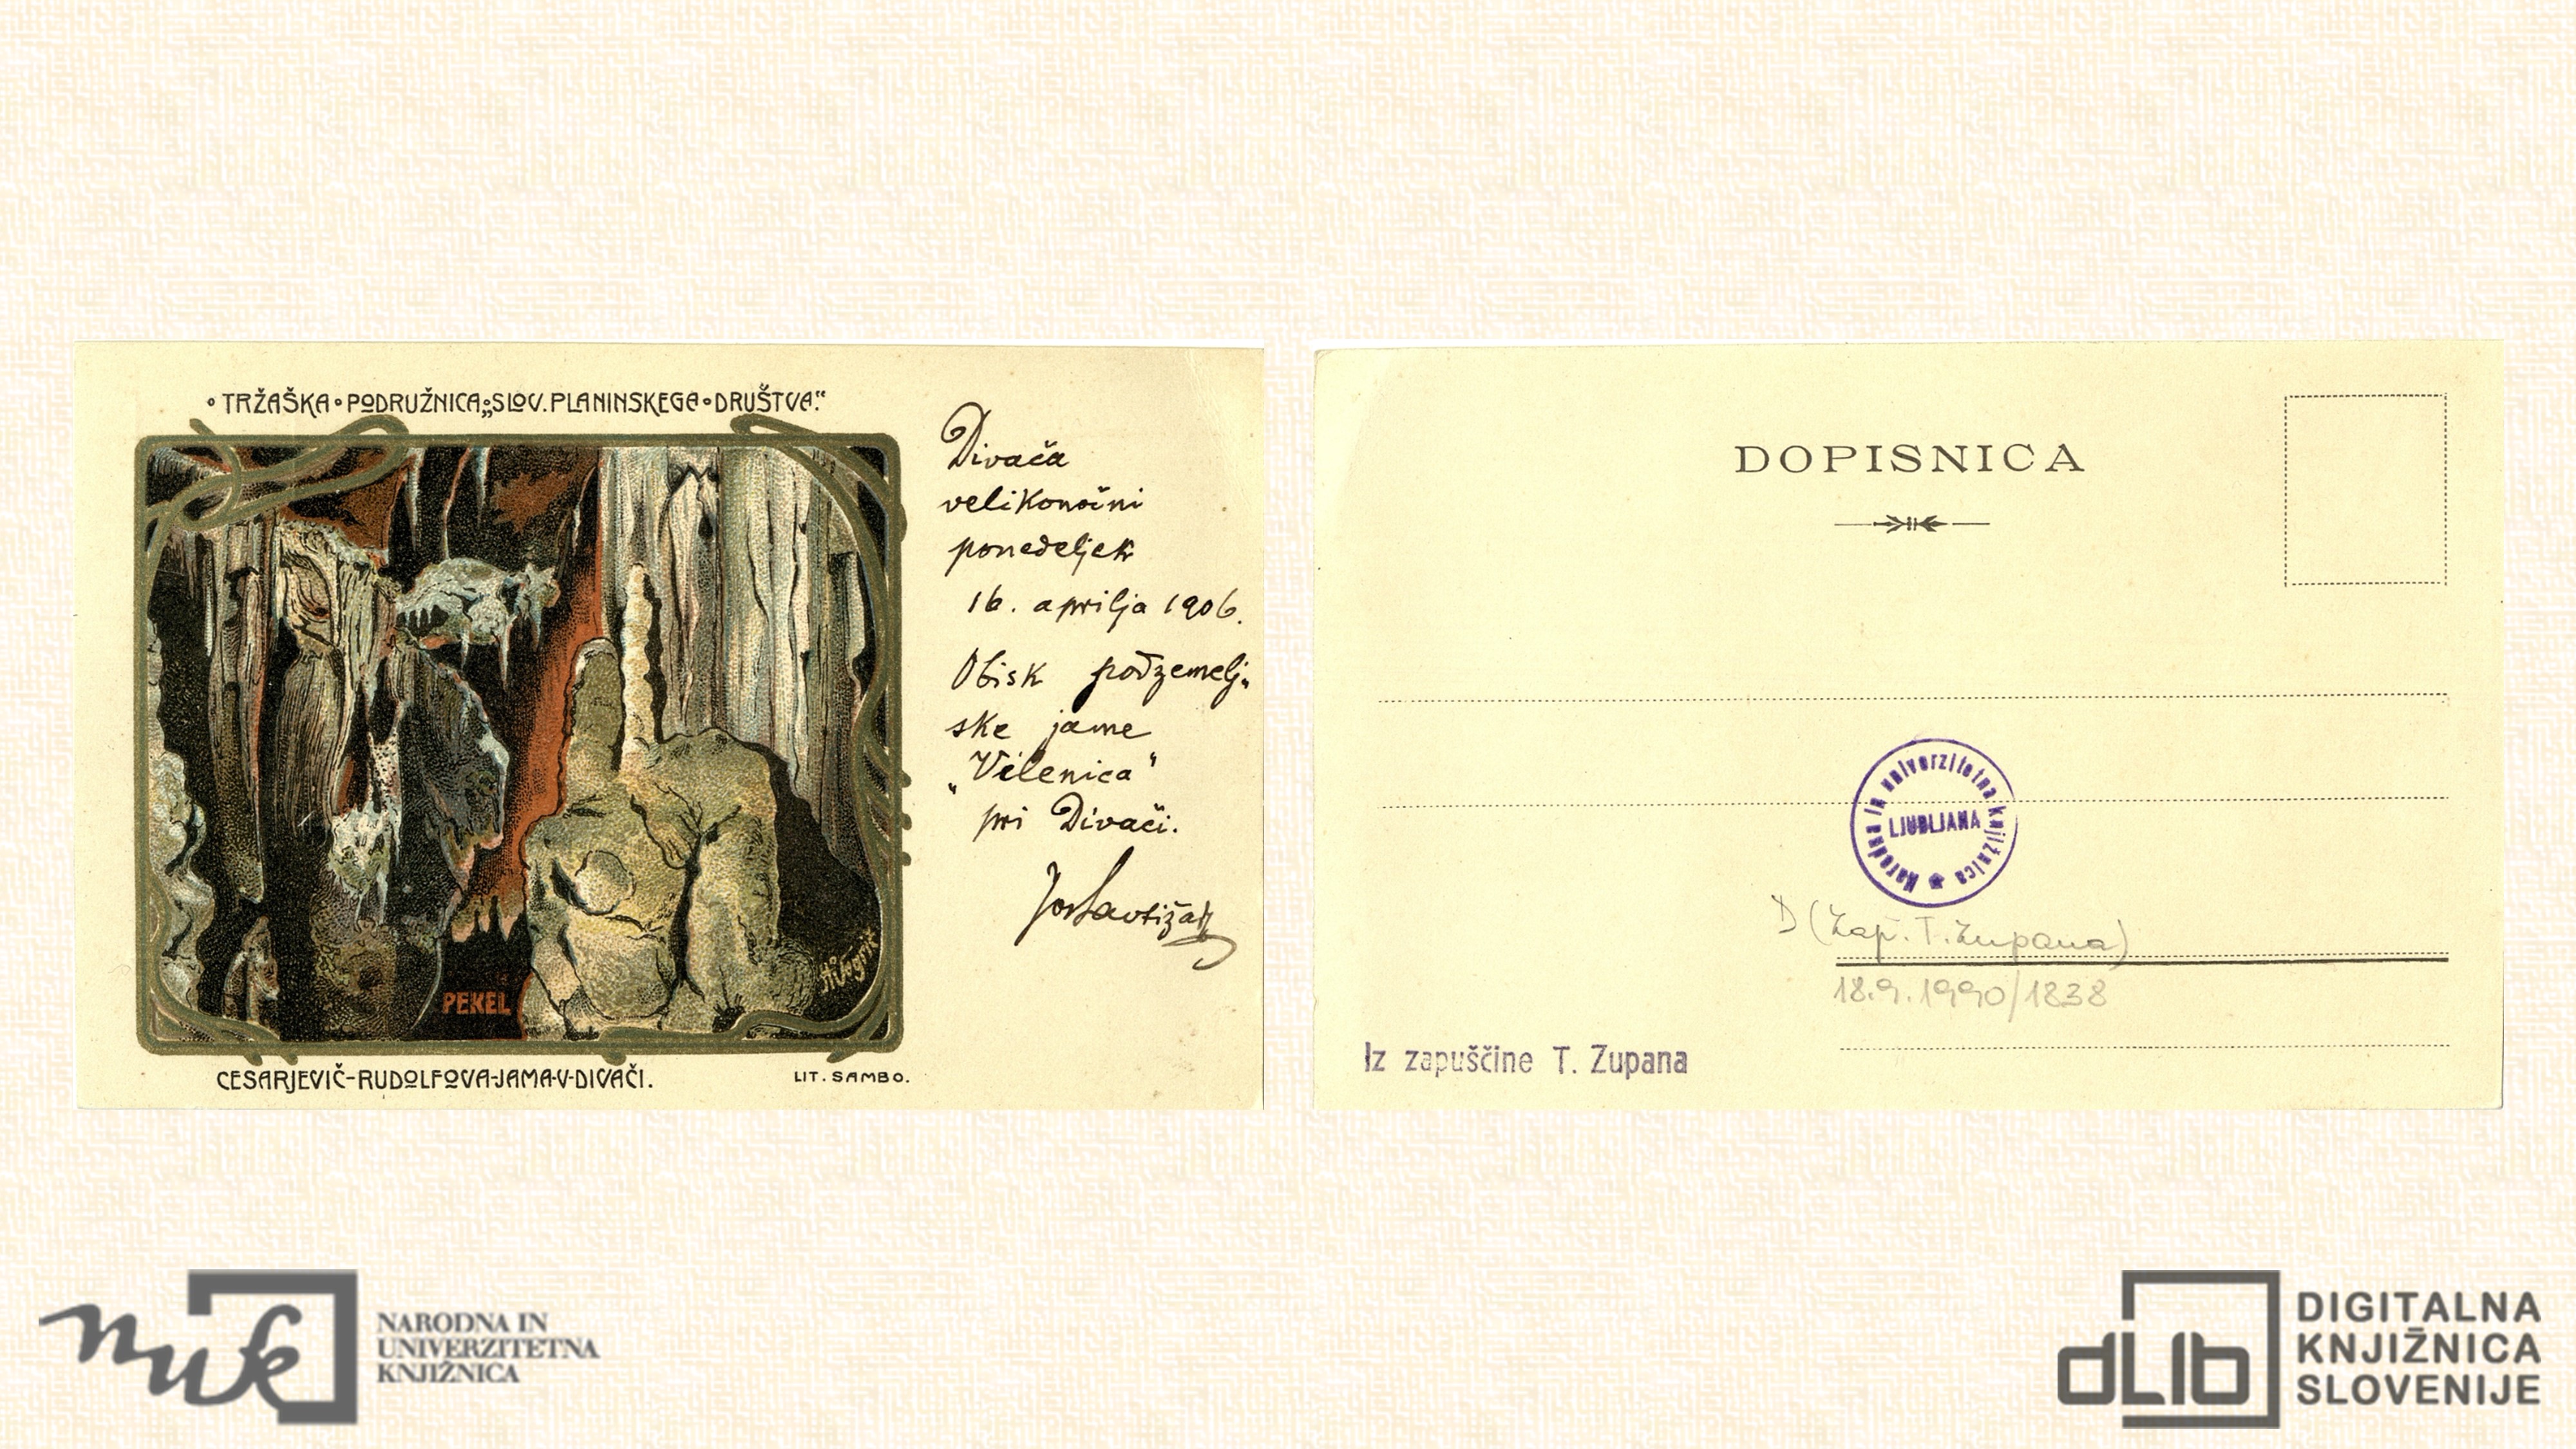 ° TRŽAŠKA ° PODRUŽNICA „SLOV. PLANINSKEGA ° DRUŠTVA.“
PEKEL
CESARJEVIČ-RUDOLFOVA-JAMA-V-DIVAČI.
LIT. SAMBO.
Divača
velikonočni
ponedeljek
16. aprilja 1906.
Obisk podzemelj-
ske jame
„Vilenica“
pri Divači.
DOPISNICA
Narodna in univerzitetna knjižnica
LJUBLJANA
D (Zap. T. Zupana)
18.9.1990/1838
Iz zapuščine T. Zupana
nuk
NARODNA IN
UNIVERZITETNA
KNJIŽNICA
dLIb
DIGITALNA
KNJIŽNICA
SLOVENIJE